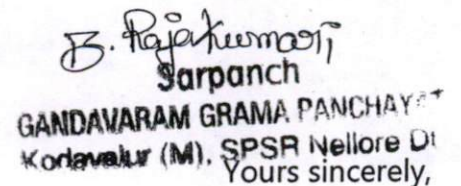 B. Rajakumari
Sarpanch
GANDAVARAM GRAMA PANCHAYAT
Kodavalur (M), SPSR Nellore Dt
Yours sincerely,